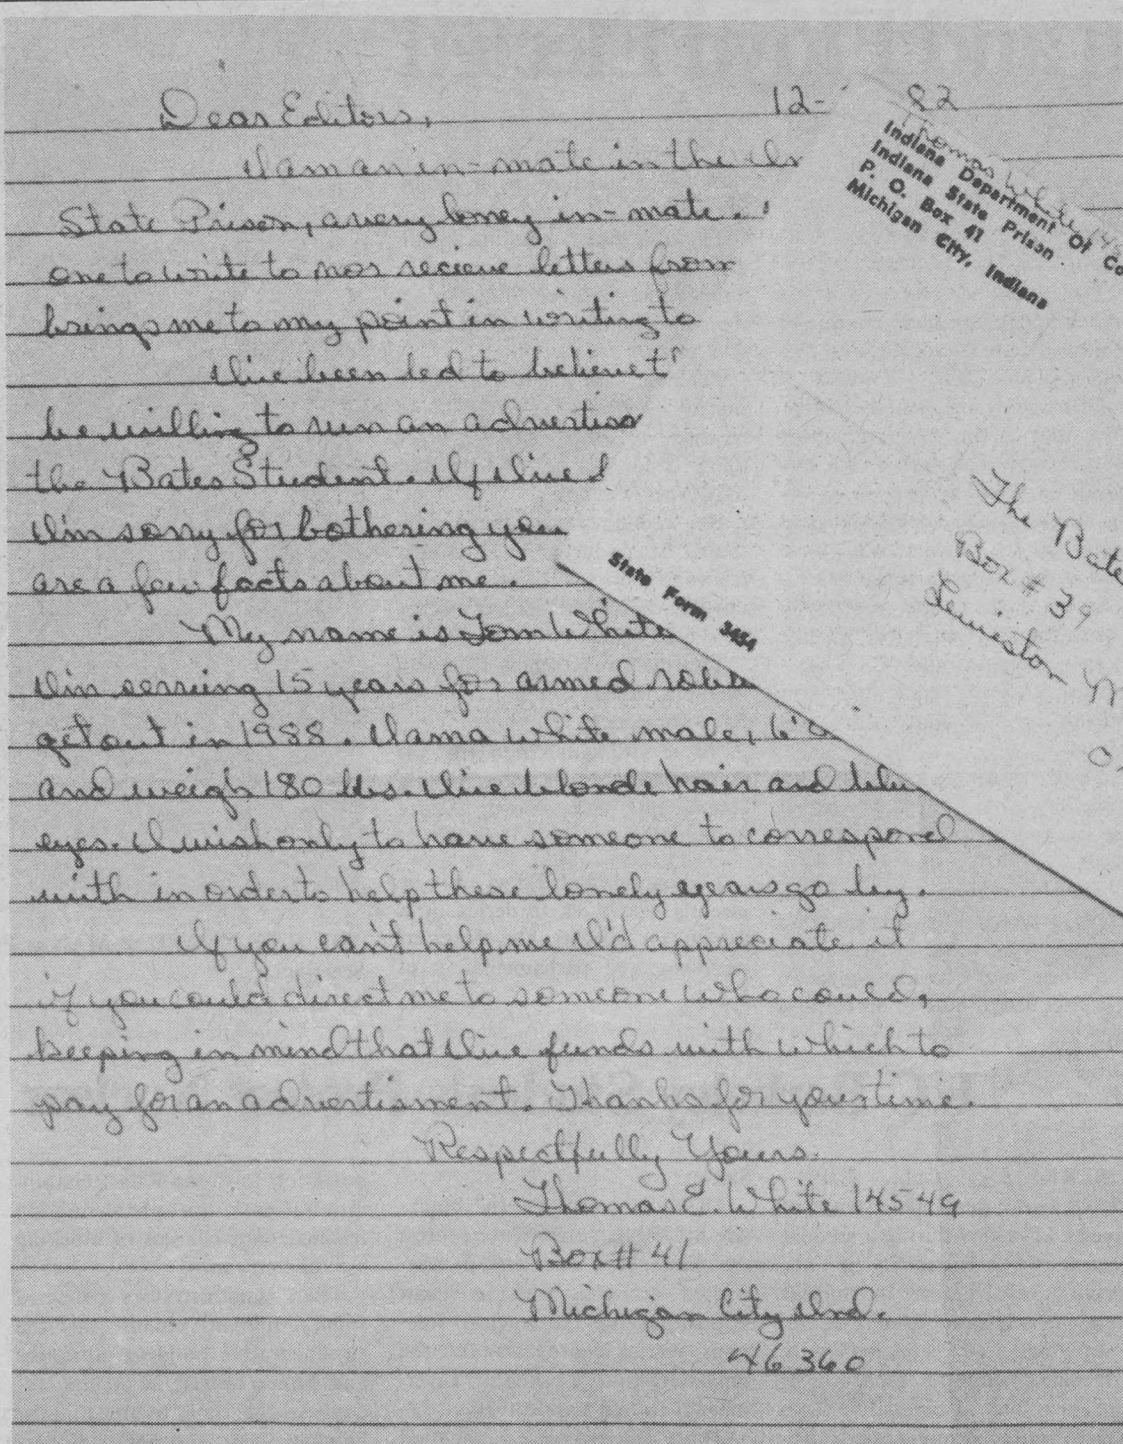 Dear Editors,
12- 82
I am an in-mate in the
State Prison, a very loney in-mate.
one to write to nor recieve letters from
brings me to my point in writing to
I've been led to believe
be willing to run an
the Bates Student. If I've
I'm sorry for bothering you
are a few facts about me.
My name is Tom White
I'm serving 15 years for armed
get out in 1988. I am a white male, 6'
and weigh 180 lbs. I've blonde hair and
eyes. I wish only to have someone to correspond
with in order to help these lonely years go by.
If you can't help me I'd appreciate it
if you could direct me to someone who could,
keeping in mind that I've funds with which to
pay for an advertisment. Thanks for your time.
Respectfully Yours.
Thomas E. White 14549
Box # 41
Michigan City Ind.
46360
Thomas White
Indiana Department Of Co
Indiana State Prison
P. O. Box 41
Michigan City, Indiana
State Form 3454
The Bate
Box # 39
Lewiston M